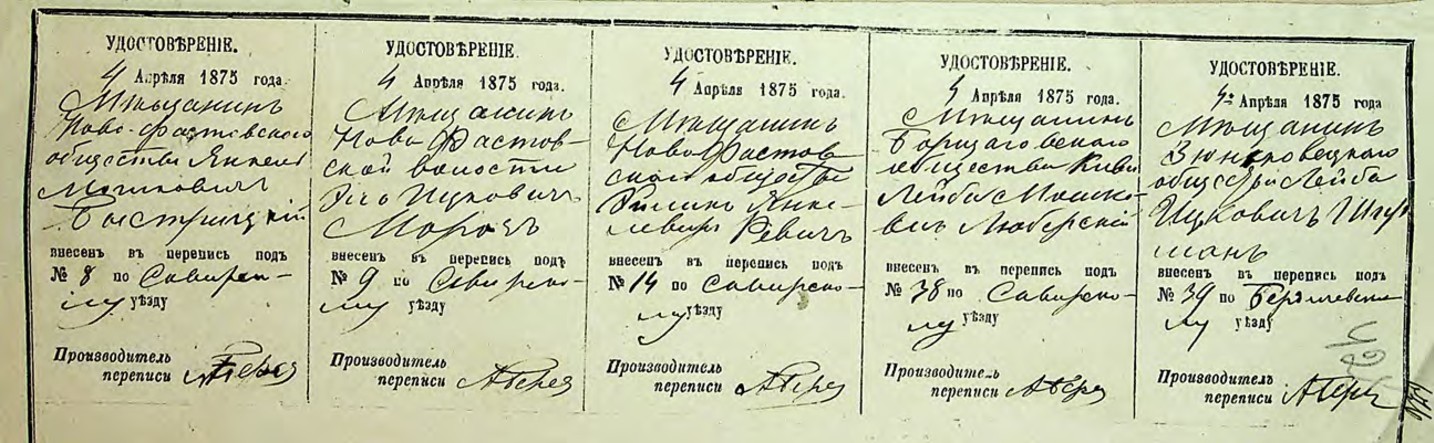 УДОСТОВѢРЕНІЕ.
4 Апрѣля 1875 года.
Мѣщанинъ
Ново-Фастовского
общества Янкель
Мошковичъ
Быстрицкій
внесенъ въ перепись подъ
№ 8 по Сквирско-
му уѣзду
Производитель
переписи
УДОСТОВѢРЕНІЕ.
4 Апрѣля 1875 года.
Мѣщанинъ
Ново Фастов-
ской волости
Ицковичъ
Морозъ
внесенъ въ перепись подъ
№ 9 по Сквирско-
му уѣзду
Производитель
переписи
УДОСТОВѢРЕНІЕ.
4 Апрѣля 1875 года.
Мѣщанинъ
Ново Фастов
ского общества
Янке-
левичъ Ревичъ
внесенъ въ перепись подъ
№ 14 по Сквирско-
му уѣзду
Производитель
переписи
УДОСТОВѢРЕНІЕ.
4 Апрѣля 1875 года.
Мѣщанинъ
Борщаговского
общества Киви
Лейба Мошко-
вичъ Люберскій
внесенъ въ перепись подъ
№ 38 по Сквирско-
му уѣзду
Производитель
переписи
УДОСТОВѢРЕНІЕ.
4 Апрѣля 1875 года
Мѣщанинъ
Зюньковецкаго
общества Лейба
Ицковичъ
манъ
внесенъ въ перепись подъ
№ 39 по Бердичевско
му уѣзду
Производитель
переписи